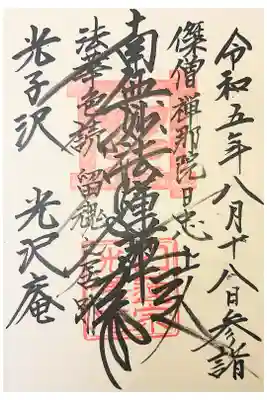 令和五年八月十八日参詣
傑僧禅那院日忠上人
南無妙法蓮華経
法華色読留魂之霊跡
光子沢 光沢庵